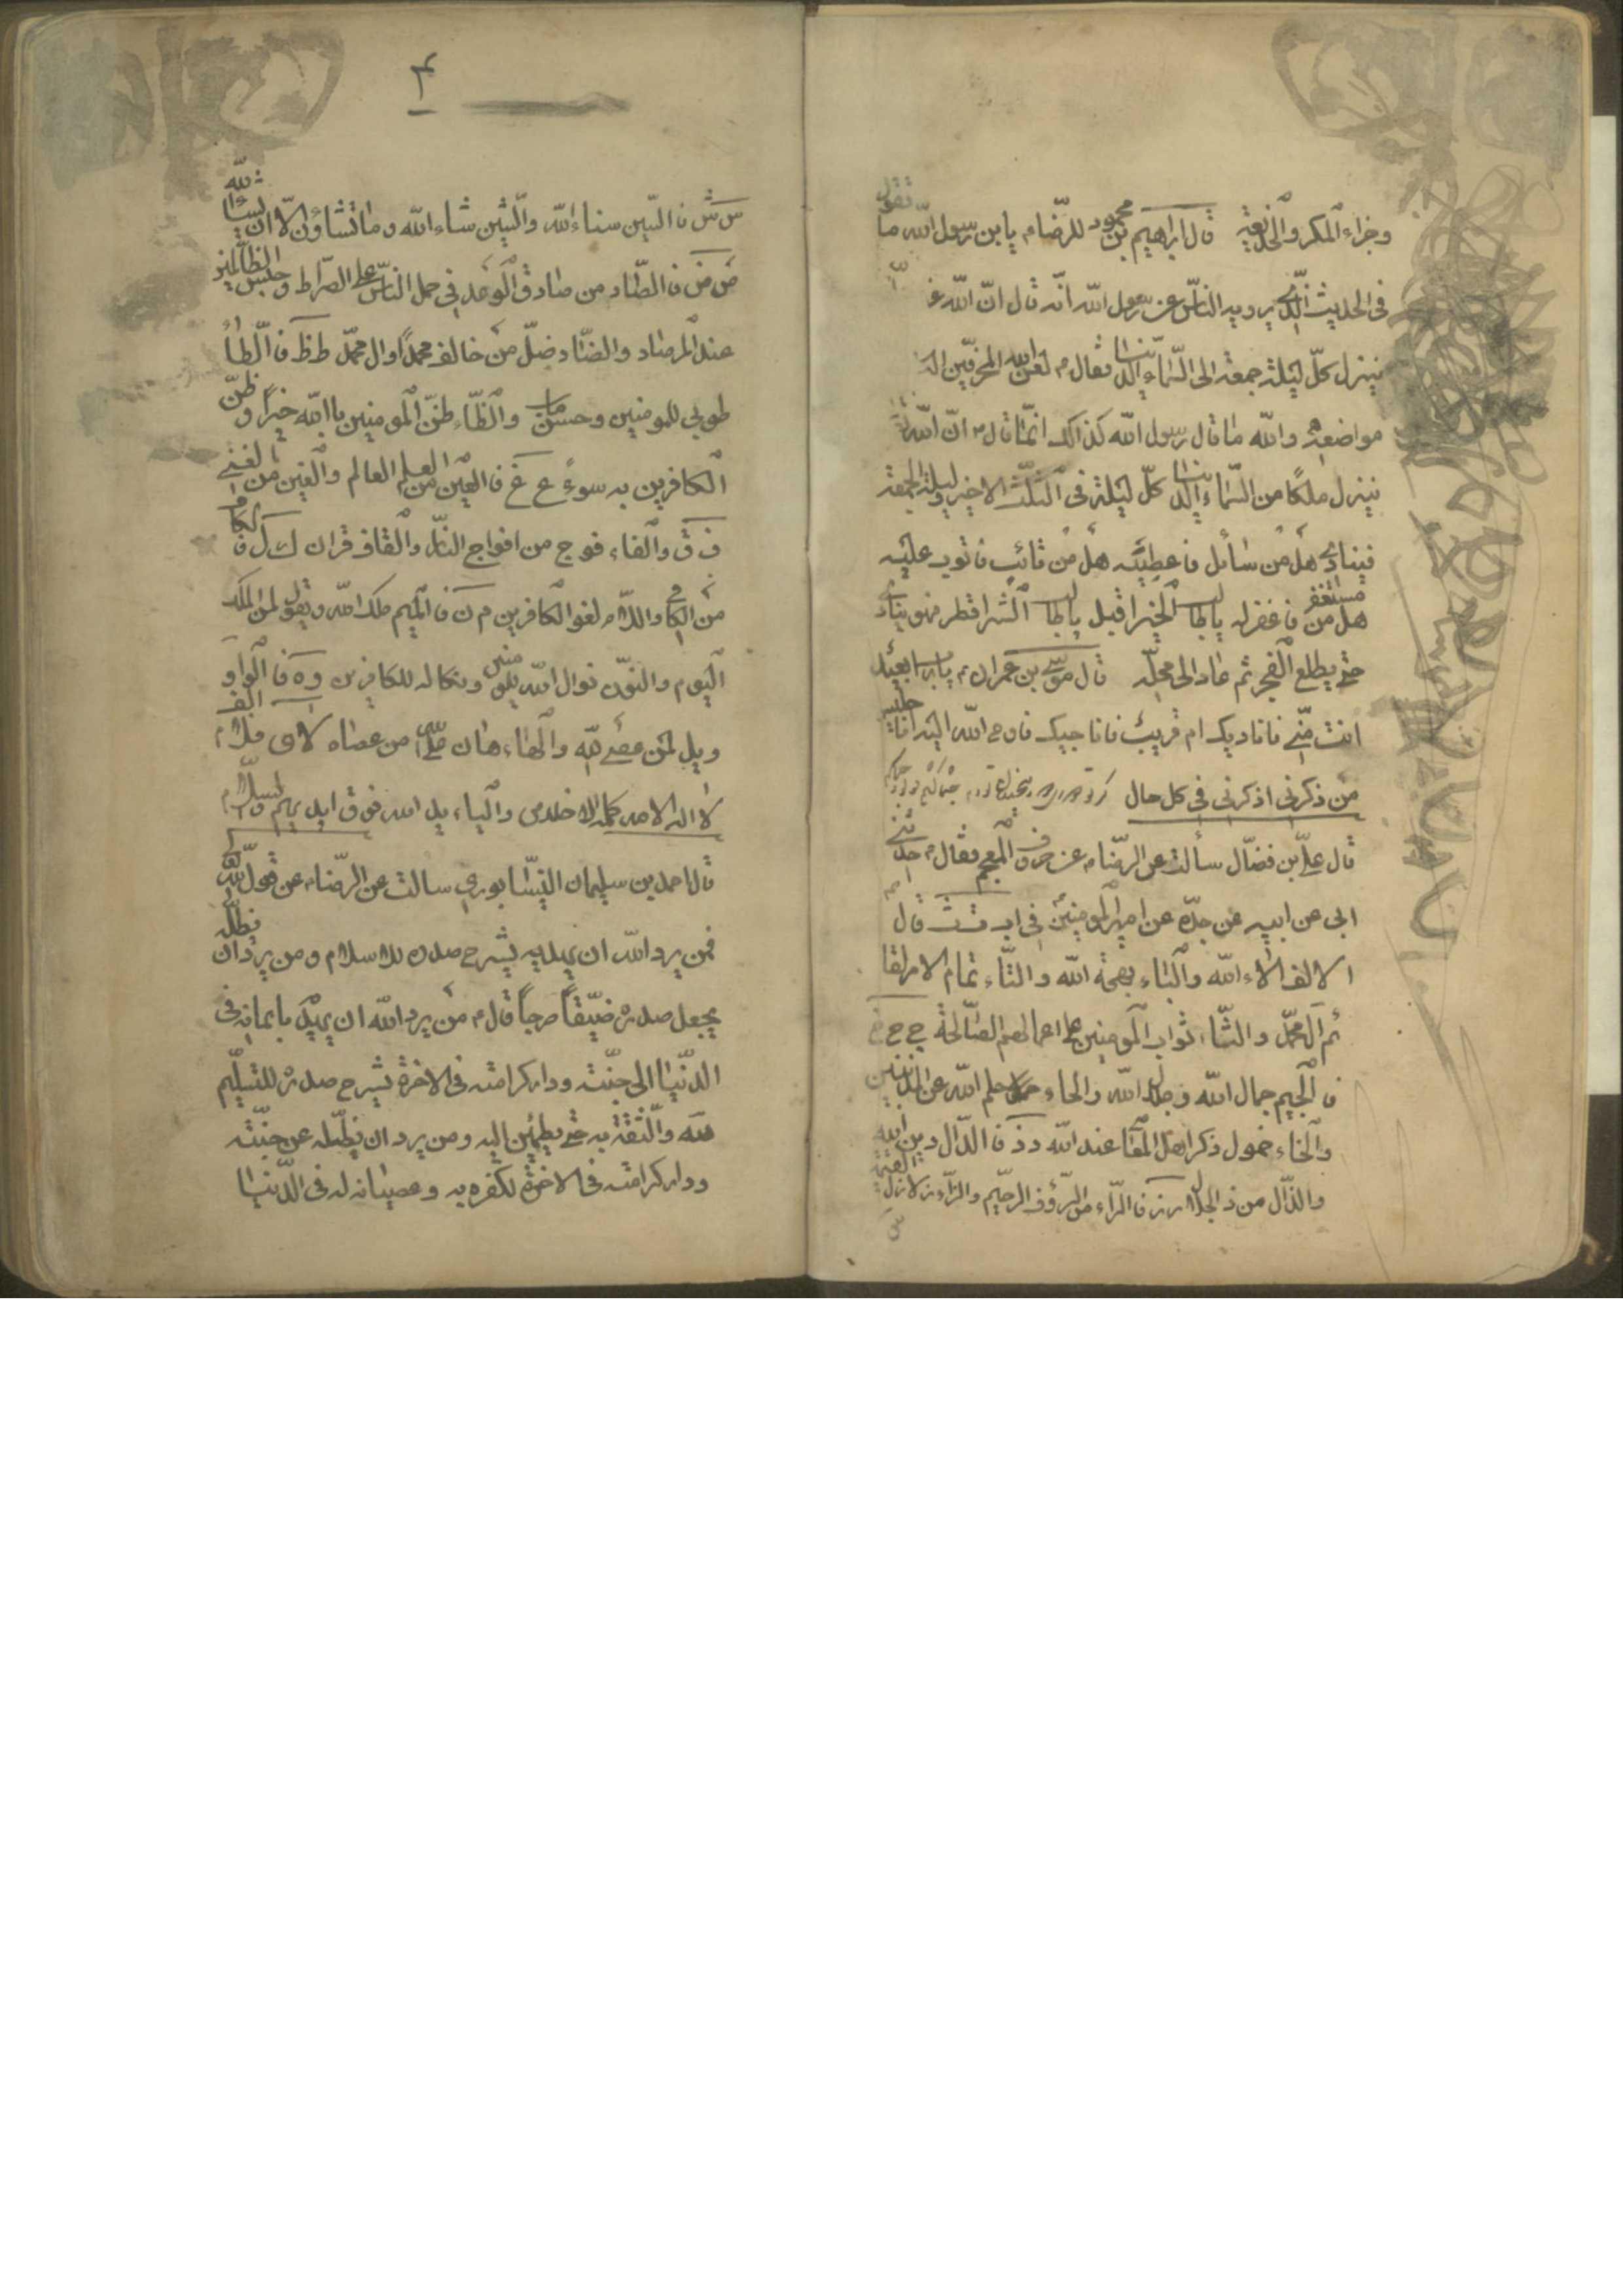 وجزاء المكر والخديعة قال ابراهيم بن محمود للرضا م يا بن رسول الله ما تقول
فى الحديث الذى يرويه الناس عن رسول الله انه قال ان الله
ينزل كل ليلة جمعة الى السماء الدنيا فقال م لعن الله المحرفين
مواضعه والله ما قال رسول الله كذالك انما قال ان الله
ينزل ملكا من السماء الدنيا كل ليلة فى الثلث الاخير وليلة الجمعة
فينادى هل من سائل فاعطيه هل من تائب فاتوب عليه
هل من مستغفر فاغفر له يا طالب الخير اقبل يا طالب الشر اقطر فهو ينادى
حتى يطلع الفجر ثم عاد الى محله قال موسى بن عمران م يا رب ابعيد
انت منى فاناديك ام قريب فاناجيك فاوحى الله اليه انا جليس
من ذكرنى اذكرنى فى كل حال
قال على بن فضال سألت عن الرضا م عن حروف المعجم فقال م حدثنى
ابى عن ابيه عن جده عن امير المومنين فى ا ب ت ث قال
الالف الاء الله والباء بهجة الله والتاء تمام الامر لقا
ئم ال محمد والثاء ثواب المومنين على اعمالهم الصالحة ج ح خ
فالجيم جمال الله وجلال الله والحاء حلم الله عن المذنبين
والخاء خمول ذكر اهل المعا عند الله د ذ فالدال دين الله
والذال من ذ الجلال ر ز فالراء من الرؤف الرحيم والزاء زلازل القيمة
س
۴
س ش فالسين سناء الله والشين شاء الله وما تشاؤن الا ان يشاء الله
ص ض فالصاد من صادق الوعد فى حمل الناس على الصراط وحبس الظالمين
عند المرصاد والضاد ضل من خالف محمدا وال محمد ط ظ فالطاء
طوبى للمومنين وحسن ماب والظاء ظن المومنين باالله خيرا وظن
الكافرين به سوء ع غ فالعين من العلم العالم والغين من الغنى
ف ق والفاء فوج من افواج النار والقاف قران ك ل فالكاف
من الكافى واللام لغو الكافرين م ن فالميم ملك الله ويقول لمن الملك
اليوم والنون نوال الله للمومنين ونكاله للكافرين و ه فالواو
ويل لمن عصى الله والهاء هان على من عصاه لا ى فلام الف
لا اله الا الله كلمة الاخلاص والياء يد الله فوق ايديهم والسلام
قال احمد بن سليمان النيسابورى سالت عن الرضا م عن قول الله
فمن يرد الله ان يهديه يشرح صدره للاسلام ومن يرد ان يضله
يجعل صدره ضيقا حرجا قال م من يرد الله ان يهديه بايمانه فى
الدنيا الى جنته ودار كرامته فى الاخرة يشرح صدره للتسليم
لله والثقة به حتى يطمئن اليه ومن يرد ان يضله عن جنته
ودار كرامته فى الاخرة لكفره به وعصيانه له فى الدنيا